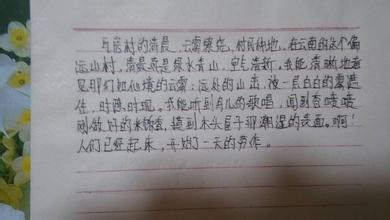 瓦房村的清晨，云雾寮绕，村民种地。在云南的这个偏
远山村，清晨真是绿水青山，空气清新，我能清晰地看
见那幻如仙境的云雾：远处的山峦，被一层白白的雾遮
住，时隐时现。我能听到鸟儿的歌唱，闻到香喷喷
刚做好的米饭香，摸到木头屋子那潮湿的表面。啊！
人们已经起床，开始了一天的劳作。